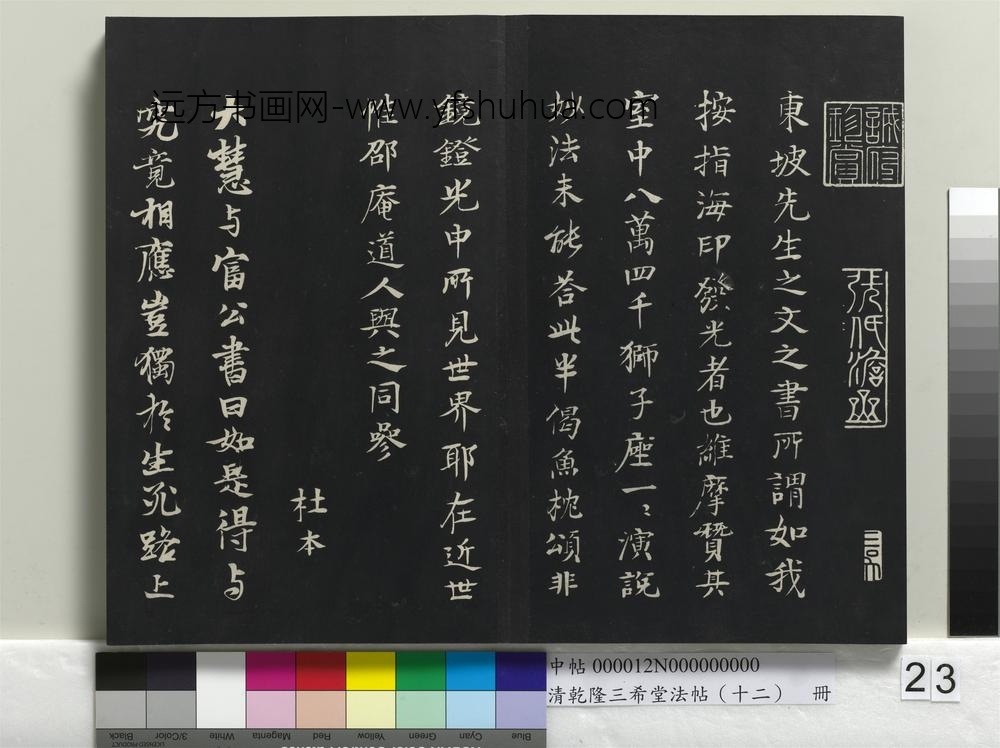 東坡先生之文之書所謂如我
按指海印發光者也維摩贒其
室中八萬四千獅子座一〻演說
妙法未能荅此半偈魚枕頌非
鏡鐙光中所見世界耶在近世
惟邵庵道人與之同參
杜本
大慧与富公書曰如是得与
究竟相應豈獨於生死路上
远方书画网-www.yfshuhua.com
中帖 000012N000000000
清乾隆三希堂法帖（十二） 冊
23
Black
3/Color
White
Magenta
Red
Yellow
Green
Cyan
Blue